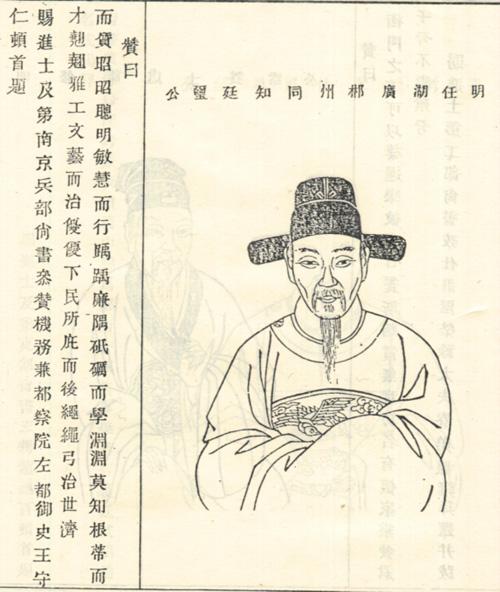 明任湖廣郴州同知廷璽公
贊曰
而質昭昭聰明敏慧而行踽踽廉隅砥礪而學淵淵莫知根蒂而
才翹翹雅工文藝而治優優下民所庇而後繩繩弓冶世濟
賜進士及第南京兵部尙書叅贊機務兼都察院左都御史王守
仁頓首題